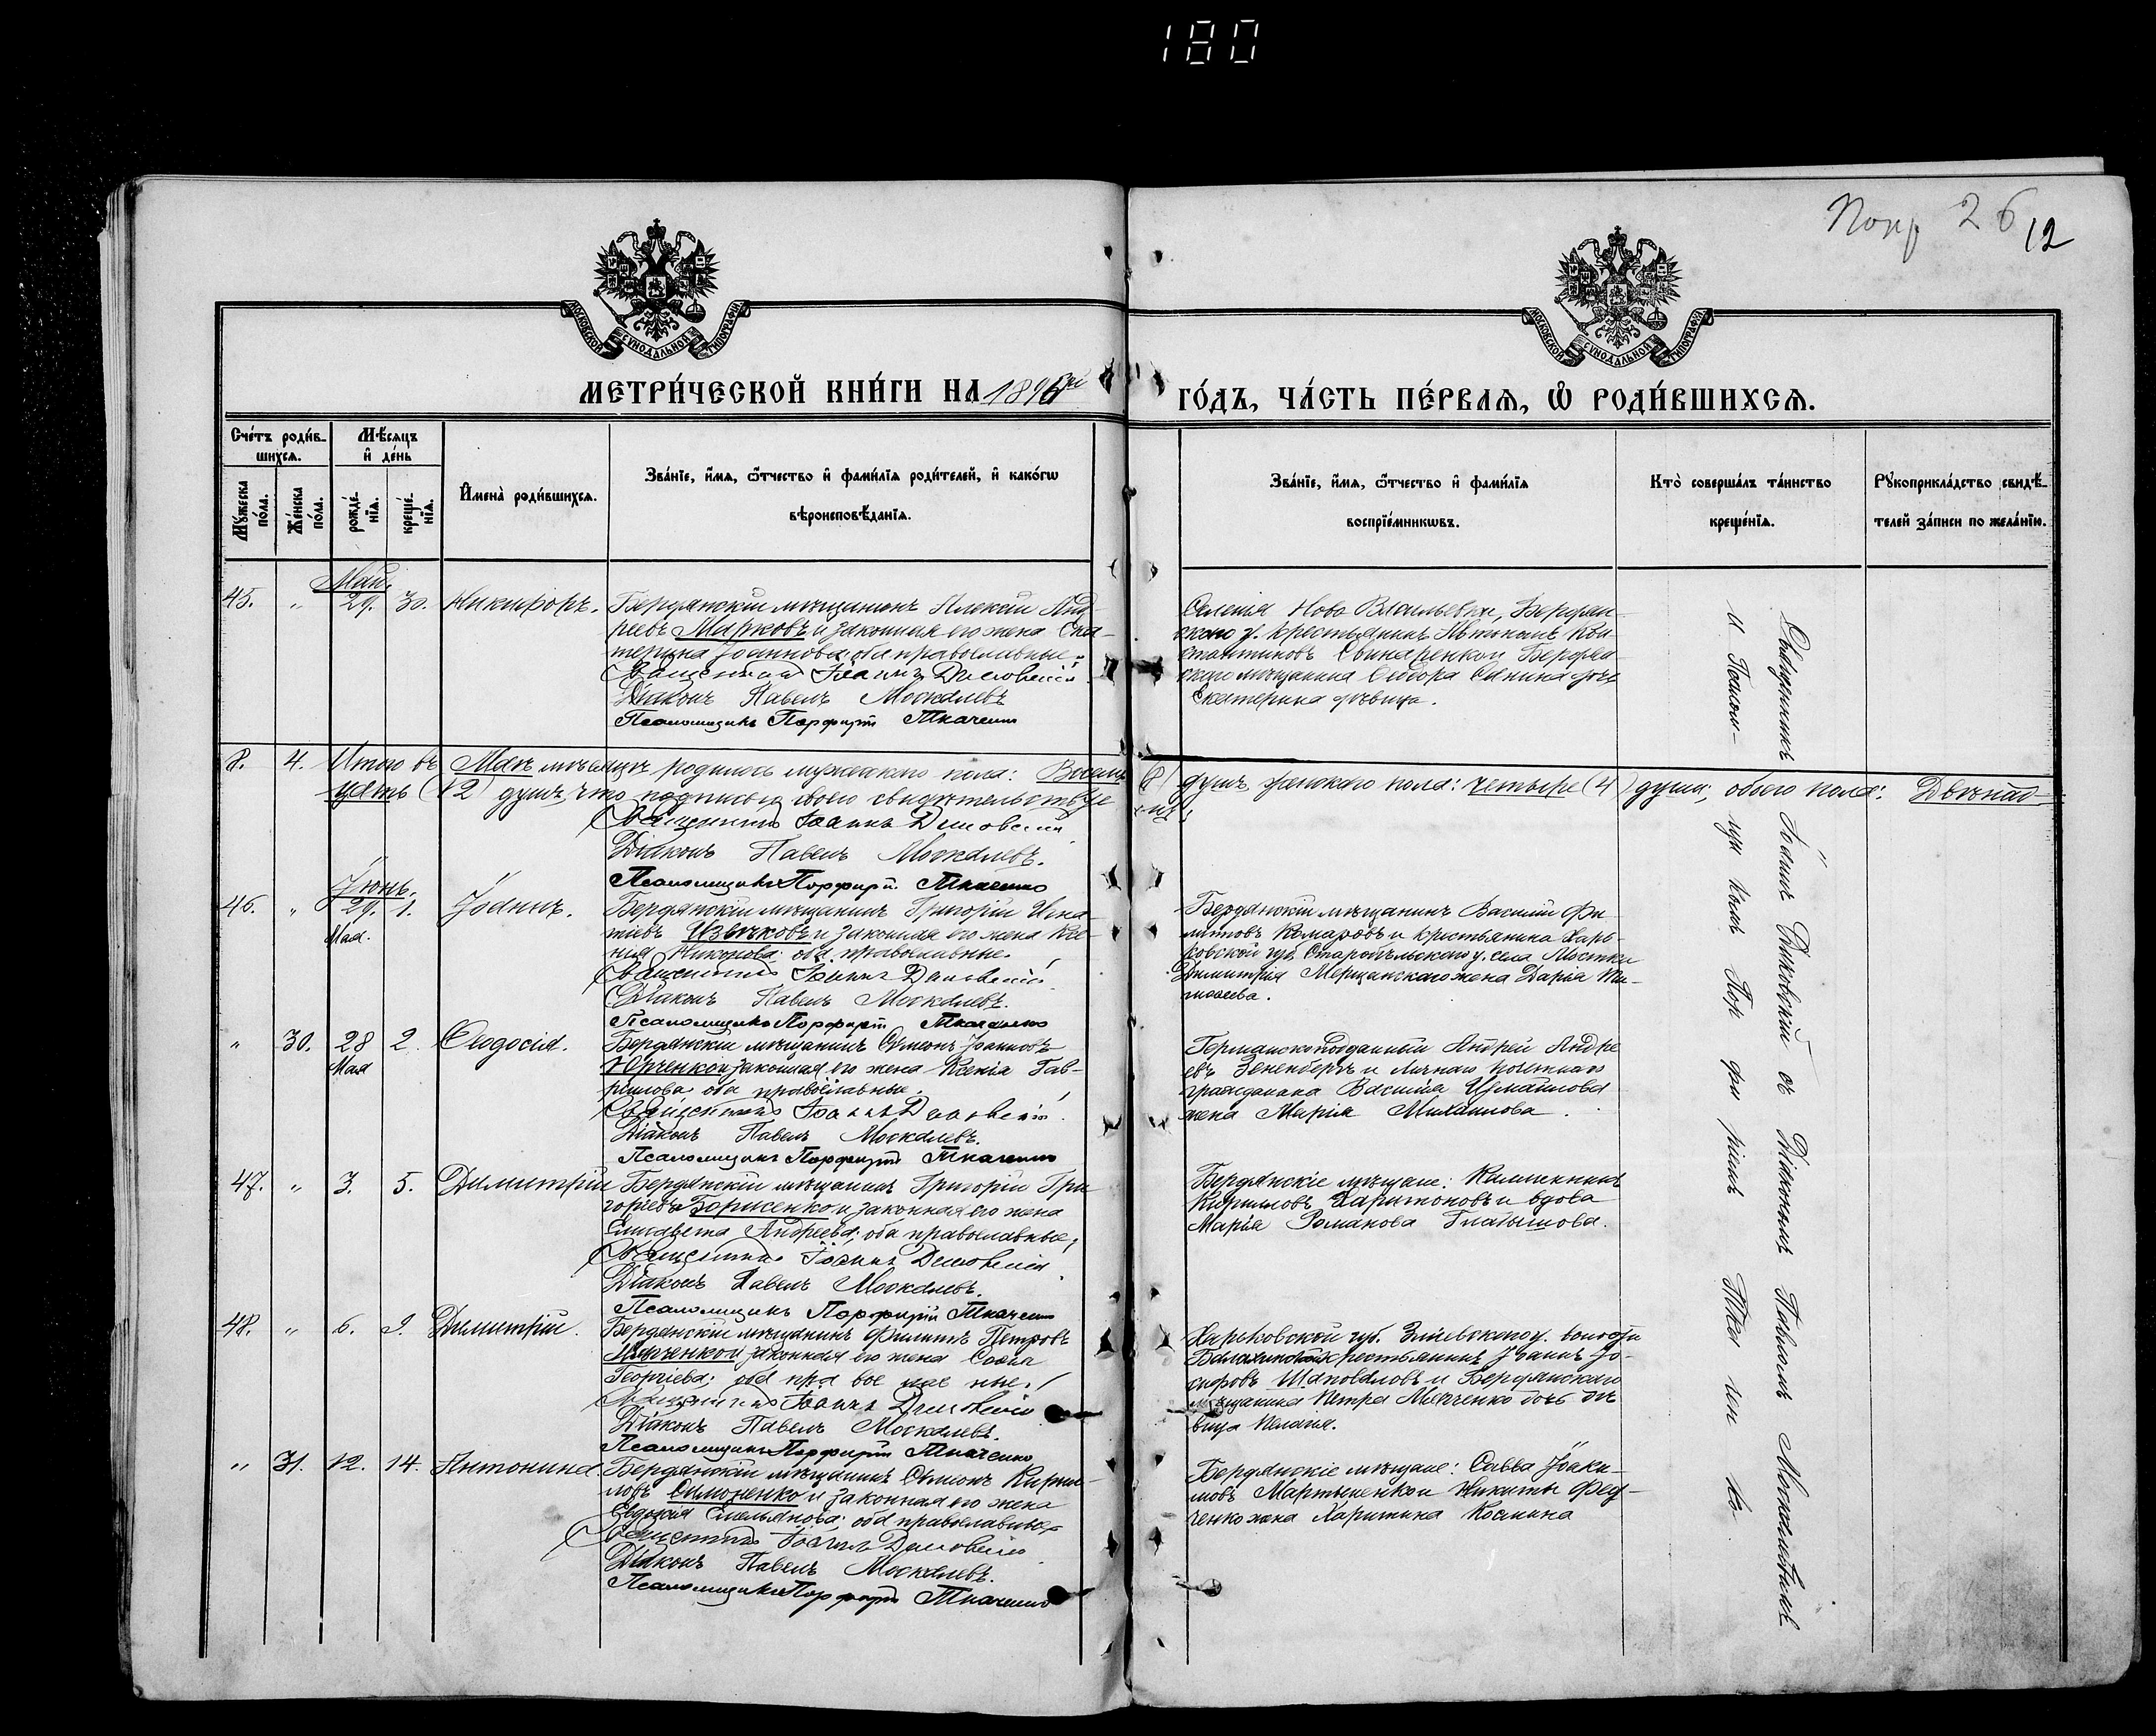 180
Попр 26
12
МОСКОВСКОЙ СѴНОДАЛЬНОЙ ТИПОГРАФІИ
МОСКОВСКОЙ СѴНОДАЛЬНОЙ ТИПОГРАФІИ
МЕТРИ́ЧЕСКОЙ КНИ́ГИ НА 1896й
ГО́ДЪ, ЧА́СТЬ ПЕ́РВАЯ, Ѡ҆ РОДИ́ВШИХСѦ.
Сче́тъ роди́в-
шихсѧ.
Мѣ́сѧцъ
и҆ де́нь
Мꙋ́жеска по́ла.
Же́нска по́ла.
рожде́-
нїѧ.
креще́-
нїѧ.
И҆мена̀ роди́вшихсѧ.
Зва́нїе, и҆́мѧ, ѻ҆́тчество и҆ фами́лїѧ роди́телей, и҆ како́гѡ
вѣроисповѣ́данїѧ.
Зва́нїе, и҆́мѧ, ѻ҆́тчество и҆ фами́лїѧ
воспрїе́мникѡвъ.
Кто̀ соверша́лъ та́инство
креще́нїѧ.
Рꙋкоприкла́дство свидѣ́-
телей за́писи по жела́нїю.
Май.
45. „ 29. 30. Никифоръ.
Бердянскій мѣщанинъ Алексѣй Анд-
реевъ Марковъ и законная его жена Ека-
терина Іоаннова оба православные.
Священникъ Іоаннъ
Діаконъ Павелъ Москалевъ
Псаломщикъ Порфирій Ткаченко
Селенія Ново Васильевки, Бердян-
скаго у. крестьянинъ Кон-
стантиновъ Свинаренко и Бердян-
скаго мѣщанина Сидора дочь
Екатерина дѣвица.
8. 4. Итого въ Маѣ мѣсяцѣ родилось мужескаго пола: Восемь (8) душъ, женскаго пола: четыре (4) души, обоего пола: Двѣнад-
цать (12) душъ, что подписью своею свидѣтельствуе
Священникъ Іоаннъ
Діаконъ Павелъ Москалевъ.
Псаломщикъ Порфирій Ткаченко
Іюнь.
46. „ 29. 1. Іоаннъ.
Мая.
Бердянскій мѣщанинъ Григорій Игна-
тіевъ Извѣковъ и законная его жена Ксе-
нія Никонова оба православные.
Священникъ Іоаннъ
Діаконъ Павелъ Москалевъ.
Псаломщикъ Порфирій Ткаченко
Бердянскій мѣщанинъ Василій Фи-
липповъ Комаровъ и крестьянина Харь-
ковской губ. Старобѣльскаго у. села Мостки
Димитрія жена Дарія Ти-
моѳеева.
„ 30. 28 2. Ѳеодосія.
Мая
Бердянскій мѣщанинъ Сѵмеонъ Іоанновъ
Юрченко и законная его жена Ксенія Гав-
рилова оба православные.
Священникъ Іоаннъ
Діаконъ Павелъ Москалевъ.
Псаломщикъ Порфирій Ткаченко
Германскоподданный Андрей Андре
евъ и личнаго почетнаго
гражданина Василія Измайлова
жена Марія Михаилова.
47. „ 3. 5. Димитрій
Бердянскій мѣщанинъ Григорій Гри
горіевъ Борисенко и законная его жена
Елисавета Андреева; оба православные;
Священникъ Іоаннъ
Діаконъ Павелъ Москалевъ.
Псаломщикъ Порфирій Ткаченко
Бердянскіе мѣщане: Каллиникъ
Кирилловъ Харитоновъ и вдова
Марія Романова
48. „ 6. 9. Димитрій.
Бердянскій мѣщанинъ Филиппъ Петровъ
и законная его жена Софія
Георгіева; оба православные;
Священникъ Іоаннъ
Діаконъ Павелъ Москалевъ.
Псаломщикъ Порфирій Ткаченко
Харьковской губ. Зміевскаго у. волости
крестьянинъ Іоаннъ Іо-
сифовъ Шаповаловъ и Бердянскаго
мѣщанина Петра дочь дѣ-
вица Пелагія.
„ 31. 12. 14. Антонина.
Бердянскій мѣщанинъ Сѵмеонъ Кирил-
ловъ Симоненко и законная его жена
Евдокія Емельянова; оба православные
Священникъ Іоаннъ
Діаконъ Павелъ Москалевъ.
Псаломщикъ Порфирій Ткаченко
Бердянскіе мѣщане: Савва Іоаки-
мовъ Мартыненко и Никиты Фед-
ченко жена Харитина Косьмина
Священникъ Іоаннъ съ Діакономъ Павломъ Москалевымъ
и Псалом-щикомъ Порфиріемъ Ткаченко